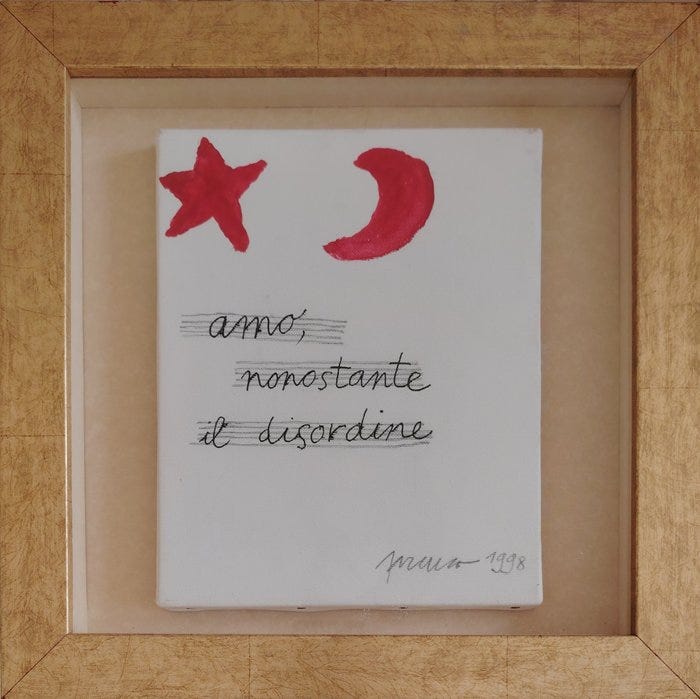 amo,
nonostante
il disordine
1998